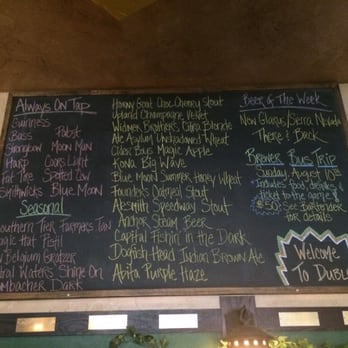 Always On Tap
Guinness
Bass Pabst
Strongbow Moon Man
Harp Coors Light
Fat Tire Spotted Cow
Smithwicks Blue Moon
Seasonal
Southern Tier Farmers Tan
Magic Hat Pistil
New Belgium Gratzer
Central Waters Shine On
Dark
Horny Goat Choc Cherry Stout
Upland Champagne Velvet
Widmer Brothers Citra Blonde
Ale Asylum Unshadowed Wheat
Cider Boys Magic Apple
Kona Big Wave
Blue Moon Summer Honey Wheat
Founders Oatmeal Stout
AleSmith Speedway Stout
Anchor Steam Beer
Capital Fishin' in the Dark
Dogfish Head Indian Brown Ale
Abita Purple Haze
Beer of The Week
New Glarus/Sierra Nevada
There & Back
Brewer Bus Trip
Sunday, August 10th
Includes food, drinks, &
ticket to the game!
$50 See bartender
for details
Welcome
To Dubl